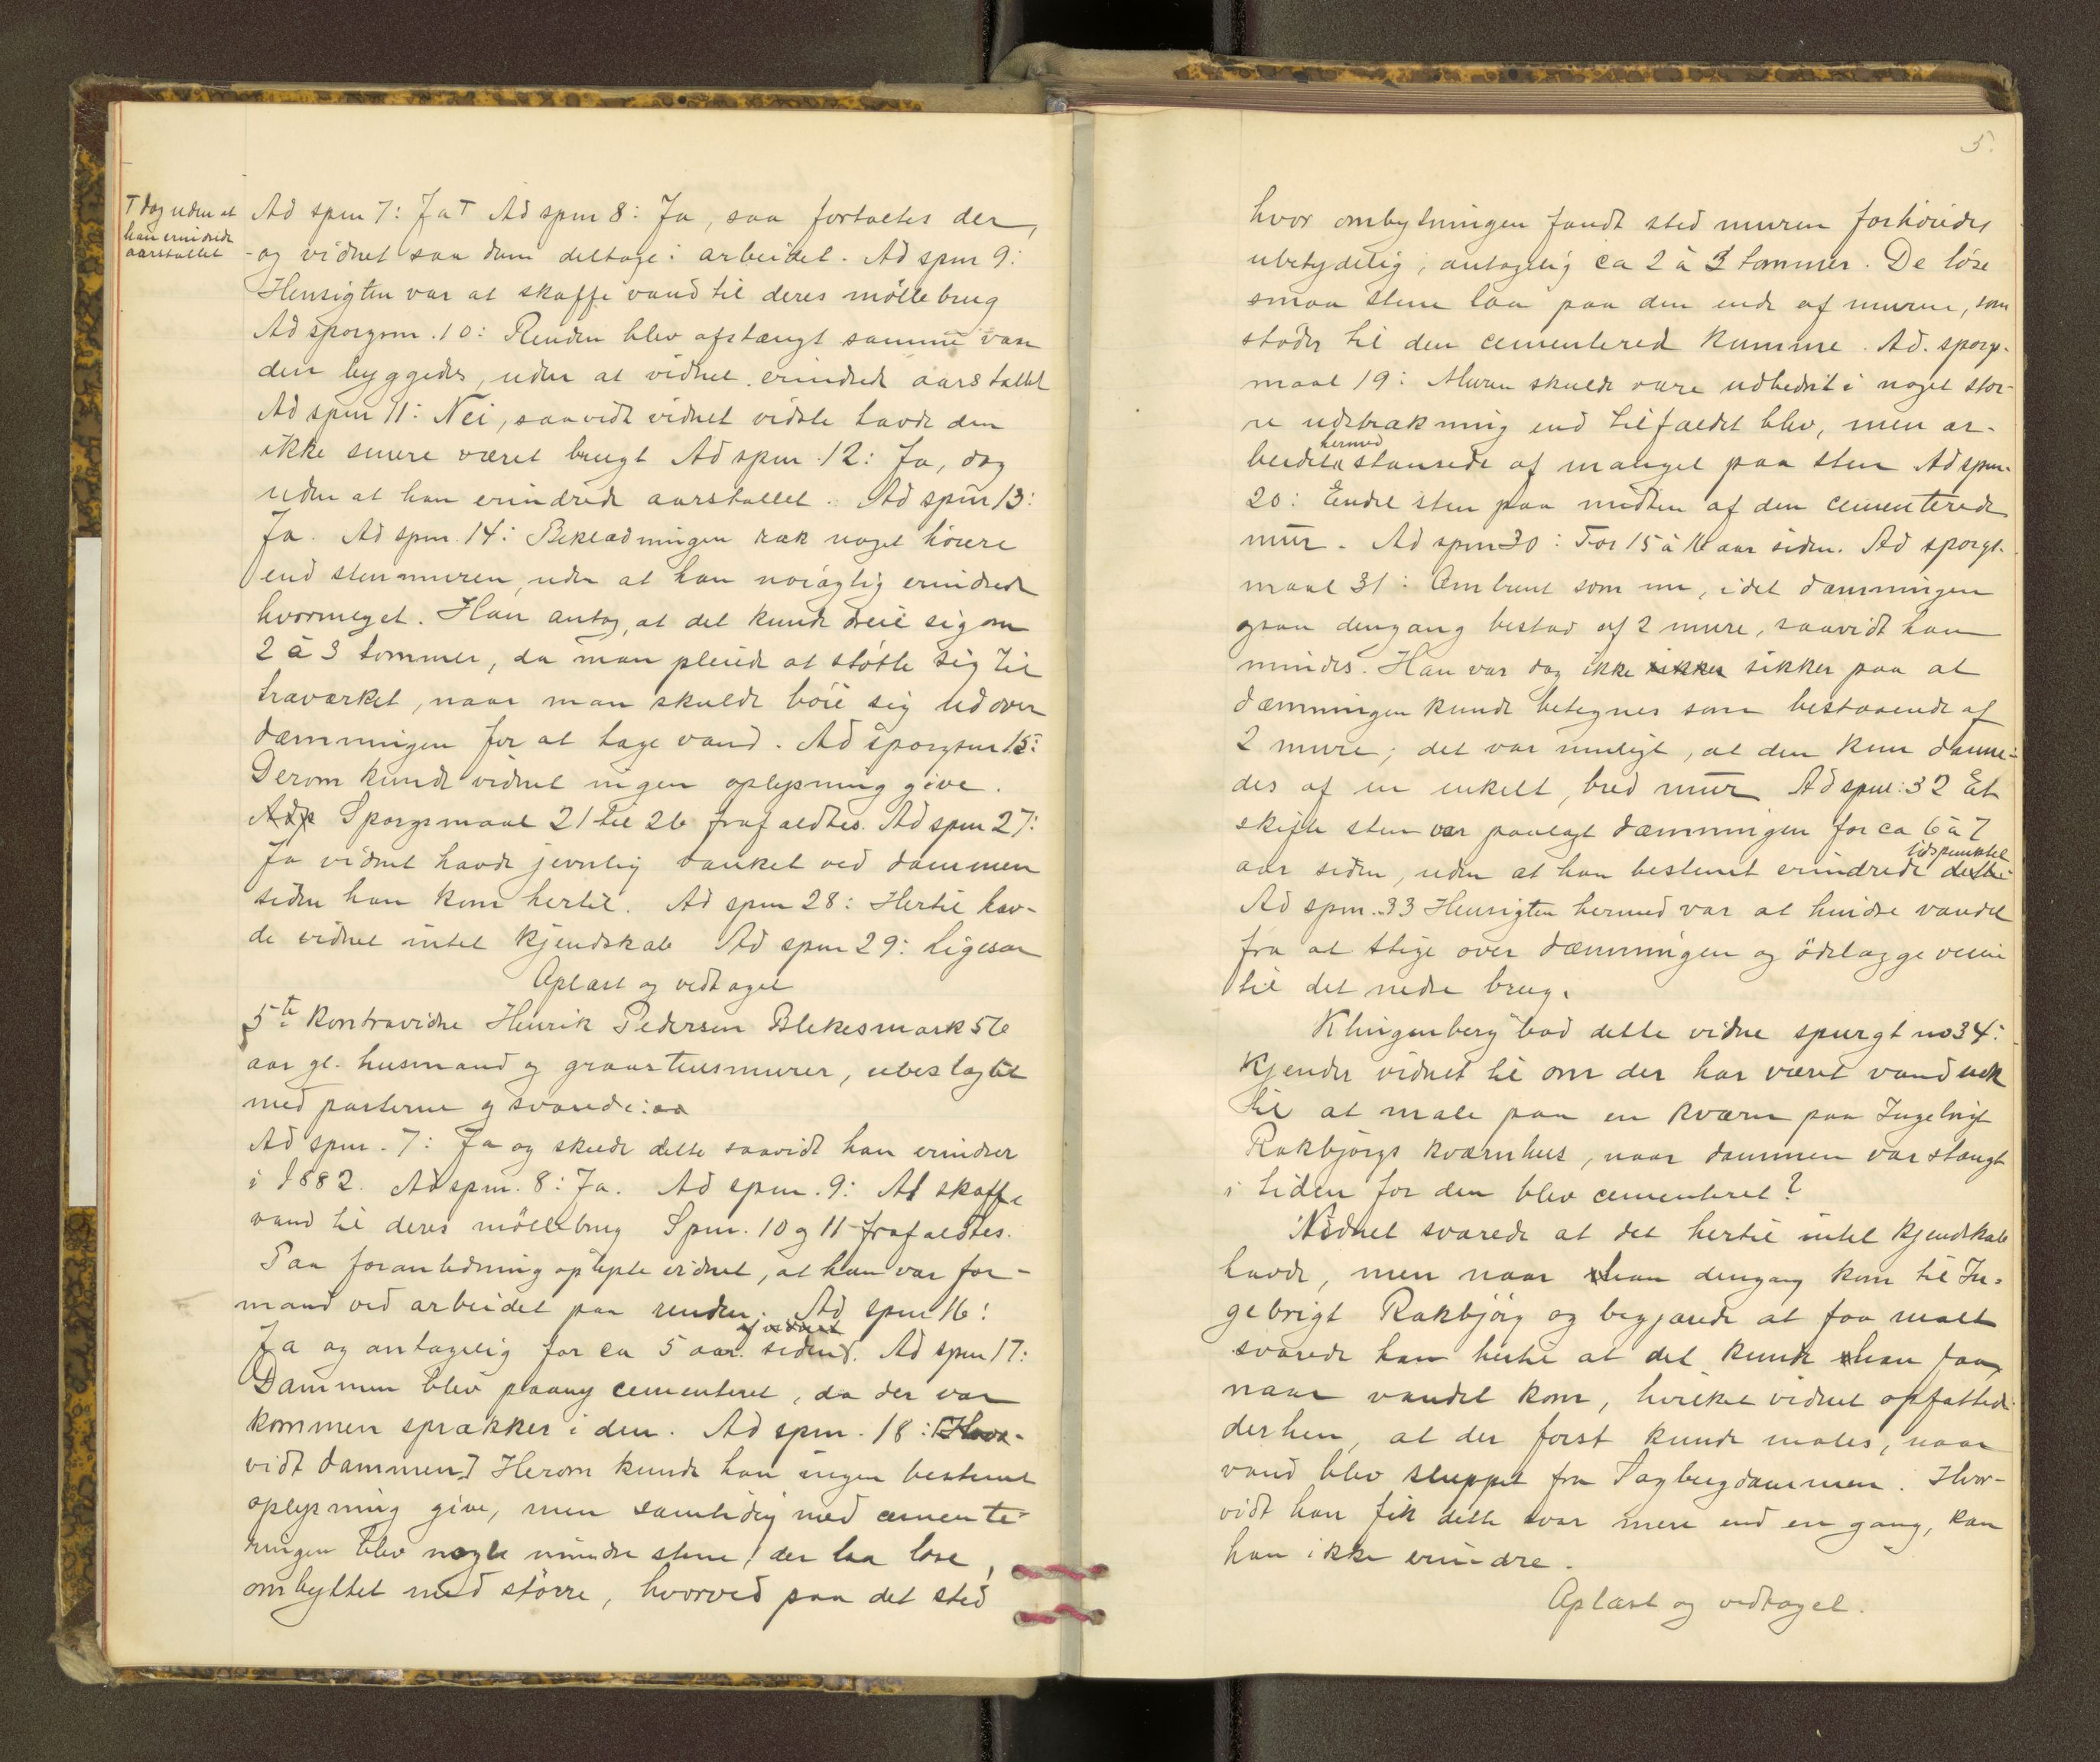 T dog uden at
han erindrede
aarstallet
Ad spm 7: Ja T Ad spm 8: Ja, saa fortaltes der,
og vidnet saa dem deltage i arbeidet. Ad spm 9:
Hensigten var at skaffe vand til deres möllebrug
Ad sporgsm. 10: Renden blev afstængt samme vaar
den byggedes, uden at vidnet erindrede aarstallet
Ad spm 11: Nei, saavidt vidnet vidste havde den
ikke senere været brugt Ad spm. 12: Ja, dog
uden at han erindrede aarstallet. Ad spm 13:
Ja. Ad spm. 14: Beklædningen rak noget höiere
end stenmuren, uden at han nöiagtig erindrede
hvormeget. Han antog, at det kunde dreie sig om
2 à 3 tommer, da man pleiede at stötte sig til
træværket, naar man skulde böie sig ud over
dæmningen for at tage vand. Ad sporgsm 15:
Derom kunde vidnet ingen oplysning give.
Adsp Sporgsmaal 21 til 26 frafaldtes. Ad spm 27:
Ja vidnet havde jevnlig vanket ved dammen
siden han kom hertil. Ad spm 28: Hertil hav-
de vidnet intet kjendskab Ad spm 29: Ligesaa
Oplæst og vedtaget
5te Kontravidne Henrik Pedersen Blekesmark 56
aar gl. husmand og graastensmurer, ubeslægtet
med parterne og svarede:
Ad spm. 7: Ja og skede dette saavidt han erindrer
i 1882. Ad spm. 8: Ja. Ad spm. 9: At skaffe
vand til deres möllebrug Spm. 10 og 11 frafaldtes.
Paa foranledning oplyste vidnet, at han var for-
mand ved arbeidet paa renden. Ad spm 16:
af vidnet
Ja og antagelig for ca 5 aar siden. Ad spm 17:
Dammen blev paany cementeret, da der var
kommen sprækker i den. Ad spm. 18: [Hvor-
vidt dammen] Herom kunde han ingen bestemt
oplysning give, men samtidig med cemente-
ringen blev nogle mindre stene, der laa löse,
ombyttet med större, hvorved paa det sted
5.
hvor ombytningen fandt sted muren forhöiedes
ubetydelig, antagelig ca 2 à 3 tommer. De löse
smaa stene laa paa den ende af muren, som
stöder til den cementerede kumme. Ad. sporgs-
maal 19: Muren skulde være udbedret i noget stör-
re udstrækning end tilfældet blev, men ar-
hermed
beidet stansede af mangel paa sten Ad spm.
20: Endel sten paa midten af den cementerede
mur. Ad spm 30: For 15 à 16 aar siden. Ad sporgs-
maal 31: Omtrent som nu, idet dæmningen
ogsaa dengang bestod af 2 mure, saavidt han
mindes. Han var dog ikke sikker sikker paa at
dæmningen kunde betegnes som bestaaende af
2 mure; det var muligt, at den kun danne-
des af en enkelt, bred mur Ad spm: 32 Et
skifte sten var paalagt dæmningen for ca 6 à 7
tidspunktet
aar siden, uden at han bestemt erindrede dette
Ad spm. 33 Hensigten hermed var at hindre vandet
fra at stige over dæmningen og ödelægge veien
til det nedre brug.
Klingenberg bad dette vidne spurgt no 34:
Kjender vidnet til om der har været vand nok
til at male paa en kværn paa Ingebrigt
Rakbjörgs kværnhus, naar dammen var stængt
i tiden för den blev cementeret?
Vidnet svarede at det hertil intet kjendskab
havde, men naar han dengang kom til In-
gebrigt Rakbjörg og begjærede at faa malt
svarede han hertil at det kunde han faa,
naar vandet kom, hvilket vidnet opfattede
derhen, at der först kunde males, naar
vand blev sluppet fra Sagbrugdammen. Hvor-
vidt han fik dette svar mere end en gang, kan
han ikke erindre.
Oplæst og vedtaget.